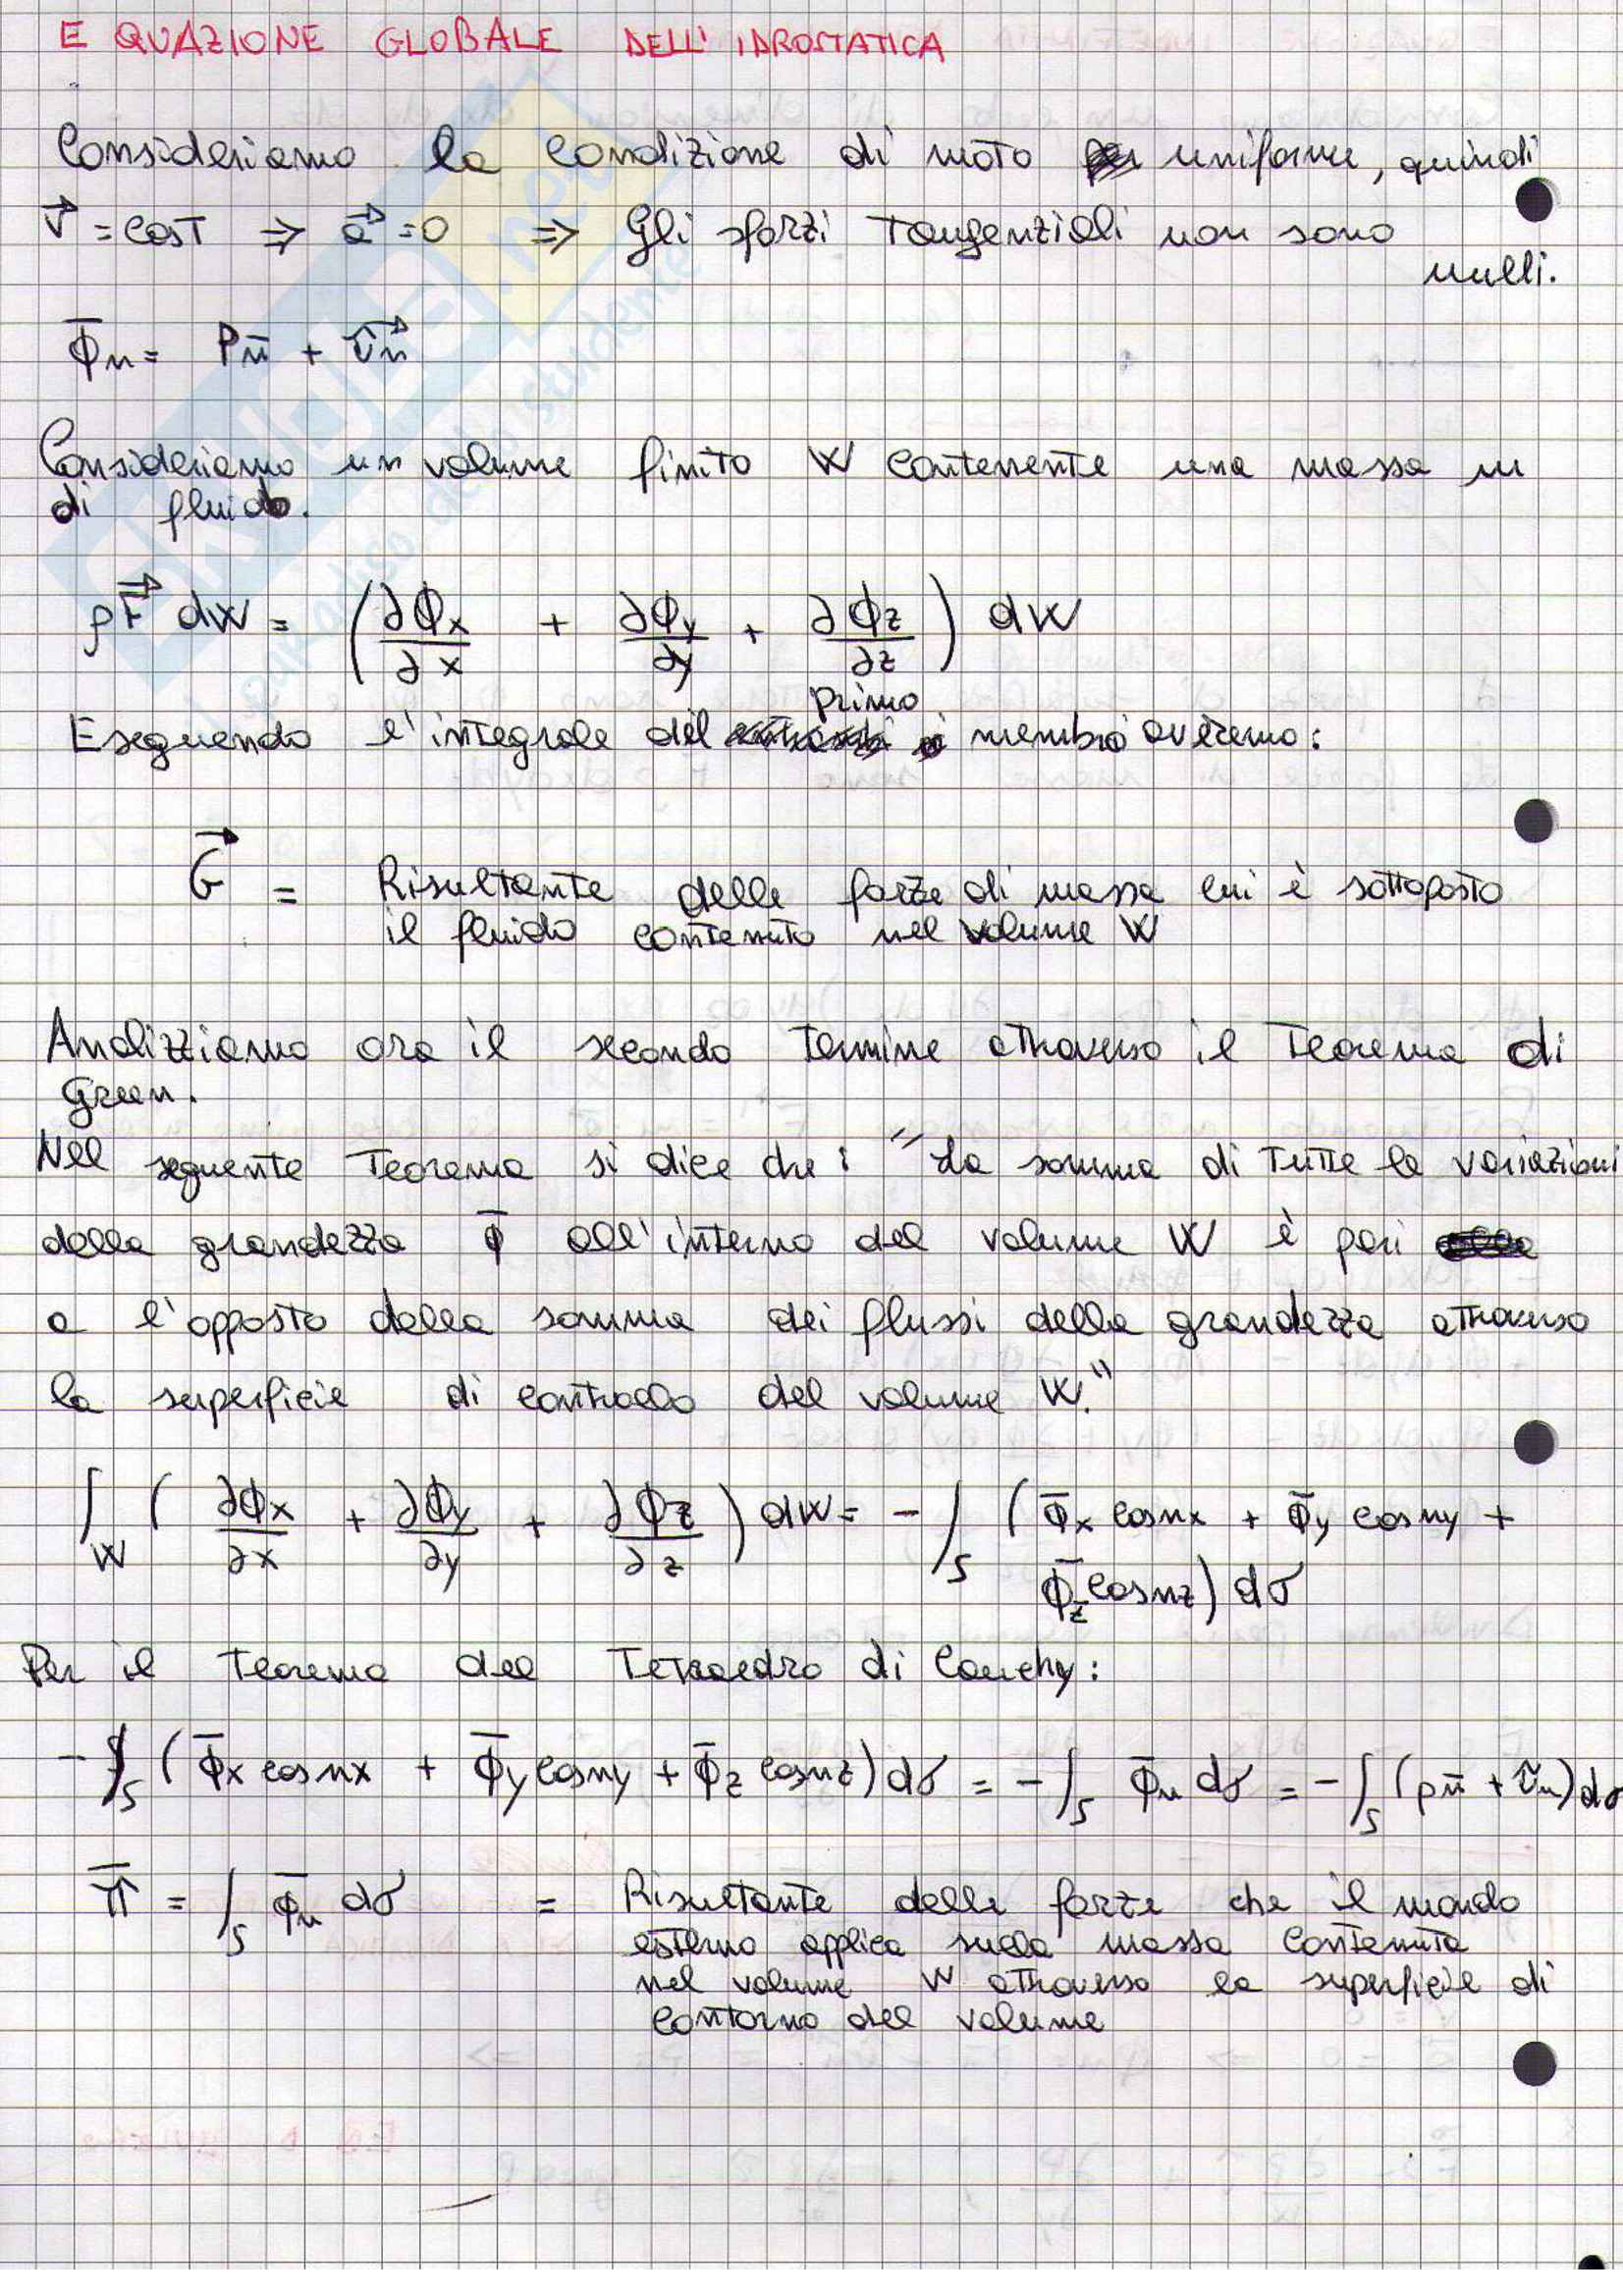 E QUAZIONE GLOBALE DELL' IDROSTATICA
Consideriamo la condizione di moto uniforme, quindi
v⃗ = cost ⇒ a⃗ = 0 ⇒ Gli sforzi tangenziali non sono
nulli.
Φ̄n = Pn̄ + τ⃗n
Consideriamo un volume finito W contenente una massa m
di fluido.
ρF⃗ dW = (∂Φx/∂x + ∂Φy/∂y + ∂Φz/∂z) dW
primo
Eseguendo l'integrale del membro avremo:
G⃗ = Risultante delle forze di massa cui è sottoposto
il fluido contenuto nel volume W
Analizziamo ora il secondo termine attraverso il Teorema di
Green.
Nel seguente Teorema si dice che: "La somma di tutte le variazioni
della grandezza Φ̄ all'interno del volume W è pari
a l'opposto della somma dei flussi della grandezza attraverso
la superficie di controllo del volume W."
∫W (∂Φx/∂x + ∂Φy/∂y + ∂Φz/∂z) dW = - ∫S (Φ̄x cosnx + Φ̄y cosny +
Φ̄z cosnz) dσ
Per il Teorema del Tetraedro di Cauchy:
-∫S (Φ̄x cosnx + Φ̄y cosny + Φ̄z cosnz) dσ = -∫S Φ̄n dσ = -∫S (pn̄ + τ̄n) dσ
Π̄ = ∫S Φ̄n dσ = Risultante delle forze che il mondo
esterno applica sulla massa contenuta
nel volume W attraverso la superficie di
contorno del volume